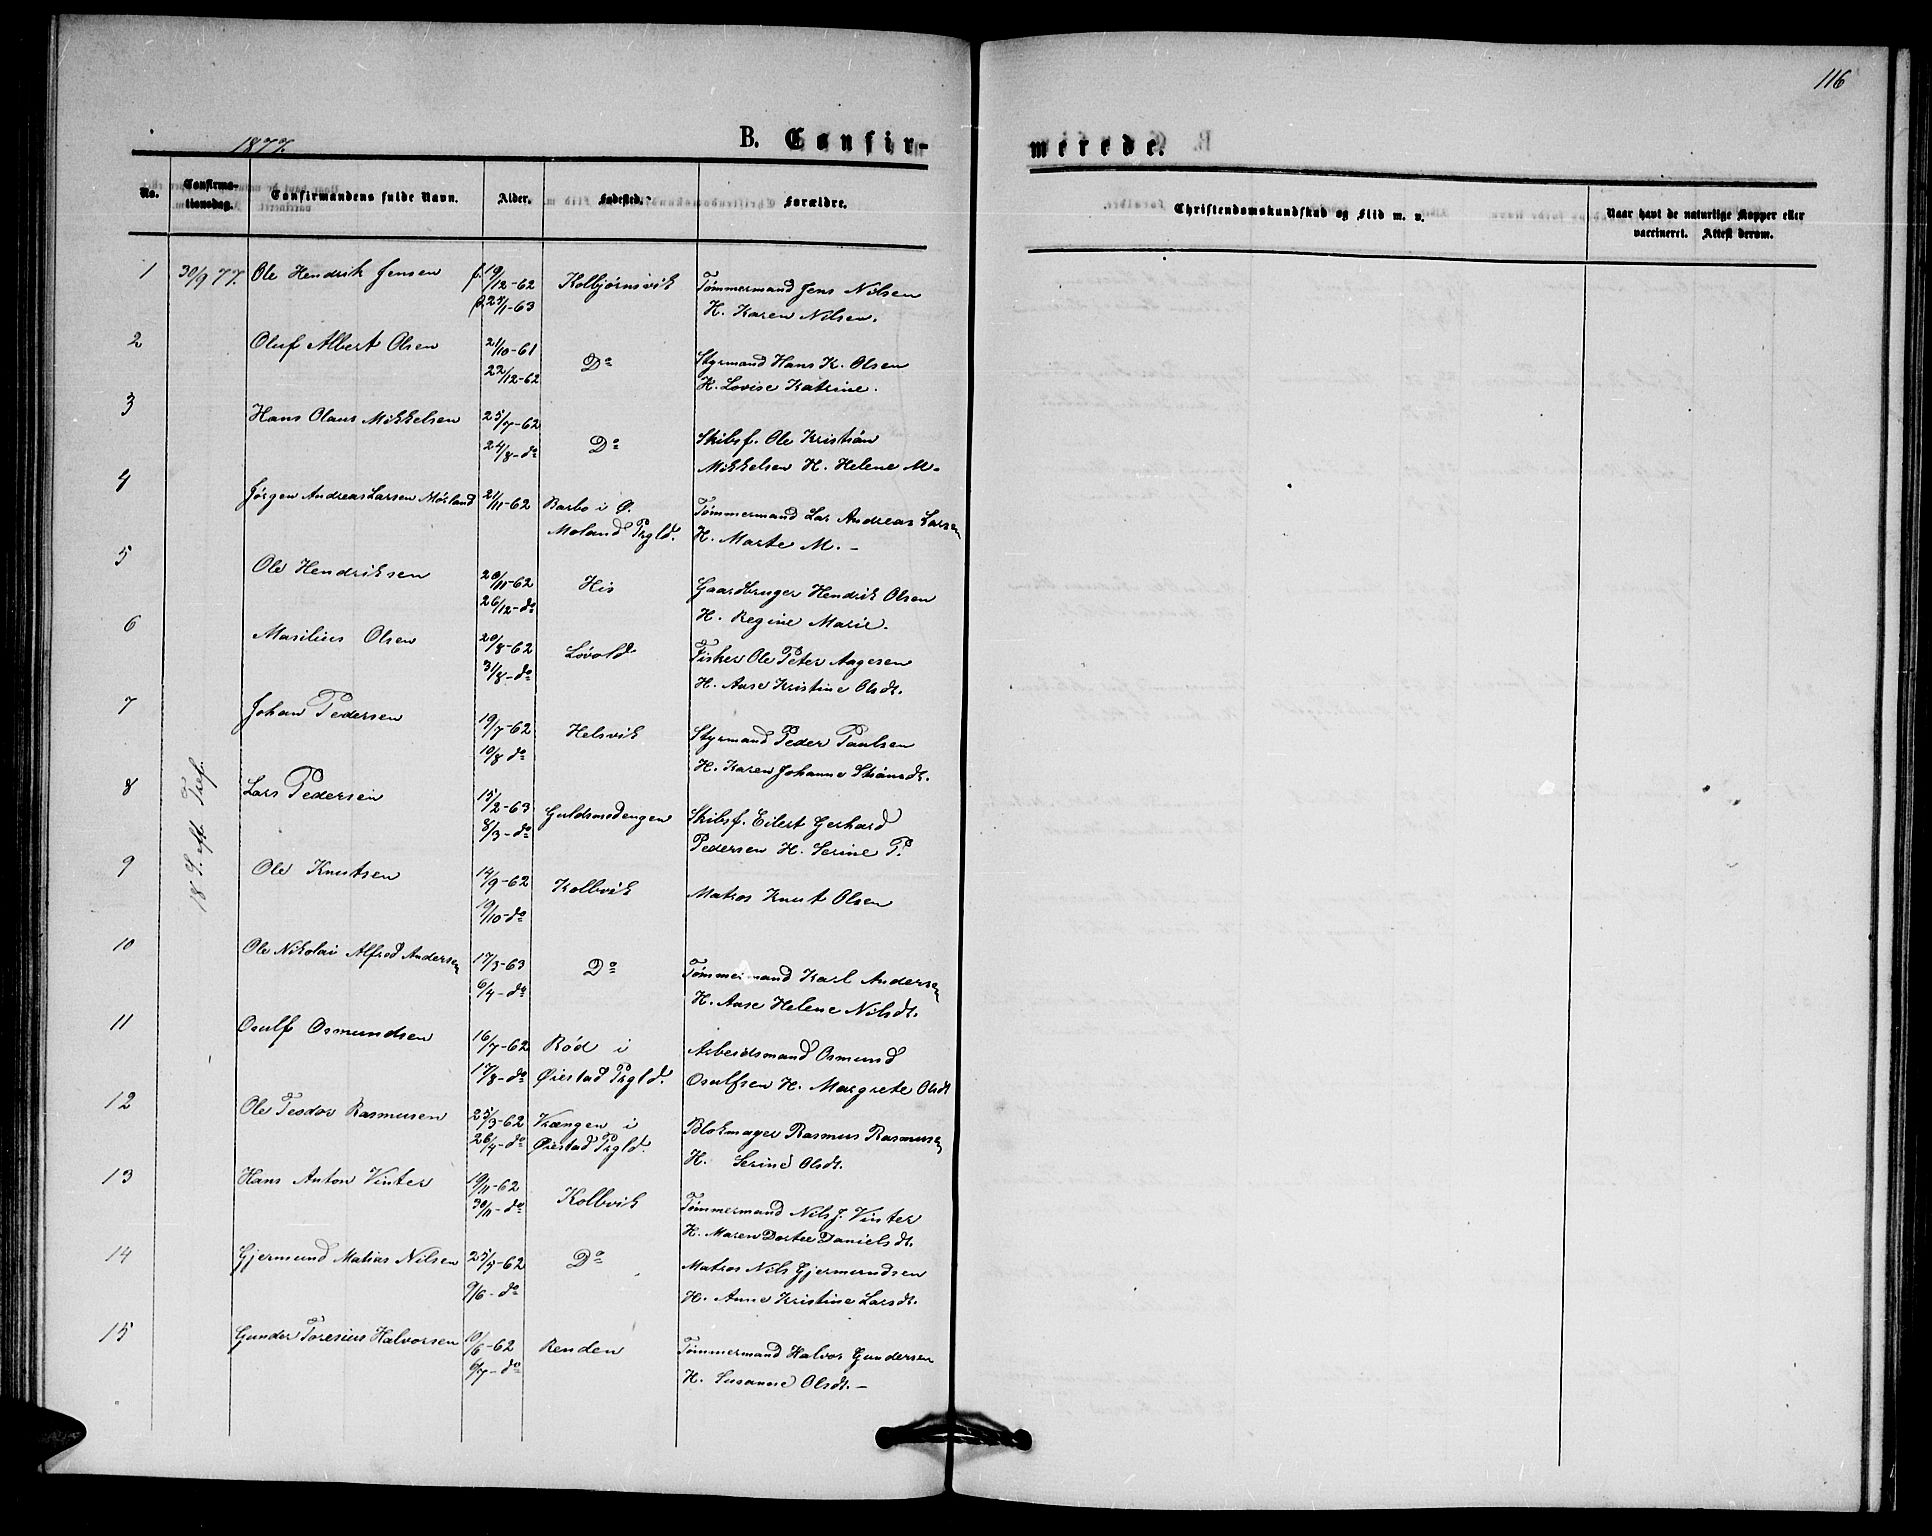 116
1877.
B. Confir-
merede.
No.
Confirma-
tionsdag.
Confirmandens fulde Navn.
Alder.
Fødested.
Forældre.
Christendomskundskab og Flid m. v.
Naar havt de naturlige Kopper eller
vaccineret. Attest derom.
1 30/9 77. Ole Hendrik Jensen f. 19/12-62 Kolbjørnsvik Tømmermand Jens Nilsen
1-63 H. Karen Nilsen.
2 Oluf Albert Olsen 21/10-61 Do Styrmand Hans K. Olsen
22/12-62 H. Lovise Katrine.
3 Hans Olaus Mikkelsen 25/7-62 Do Skibsf. Ole Kristian
24/8-do Mikkelsen H. Helene M.
4 Jørgen Andreas Larsen Mørland 21/11-62 Barbo i Ø. Tømmermand Lar Andreas Larsen
Moland Prgld. H. Marte M. -
5 Ole Hendriksen 20/11-62 His Gaardbruger Hendrik Olsen
26/12-do H. Regine Marie.
6 Masilius Olsen 20/8-62 Løvold Fisker Ole Peter Aagesen
31/8-do H. Aase Kristine Olsdt.
7 Johan Pedersen 19/7-62 Helsvik Styrmand Peder Paulsen
10/8 do H. Karen Johanne
8 Lars Pedersen 15/2-63 Guldsmedengen Skibsf. Eilert Gerhard
8/3-do Pedersen H. Serine P.
18 S. eft. Tref.
9 Ole Knutsen 14/9-62 Kolbvik Matros Knut Olsen
19/10-do
10 Ole Nikolai Alfred Andersen 17/3-63 Do Tømmermand Karl Andersen
6/4-do H. Aase Helene Nilsdt.
11 Osulf Osmundsen 16/7-62 Rød i Arbeidsmand Osmund
17/8-do Øiestad Prgld. Osulfsen H. Margrete Olsdt
12 Ole Teodor Rasmusen 25/3-62 Vrængen i Blokmager Rasmus Rasmusen
26/4-do Øiestad Prgld. H. Serine Olsdt.
13 Hans Anton Vinter 19/11-62 Kolbvik Tømmermand Nils J. Vinter
30/11-do H. Maren Dortee Danielsdt.
14 Gjermund Matias Nilsen 25/5-62 Do Matros Nils Gjermundsen
9/6-do H. Anne Kristine Larsdt.
15 Gunder Toresius Halvorsen 10/6-62 Renden Tømmermand Halvor Gundersen
6/7-do H. Susanne Olsdt. -